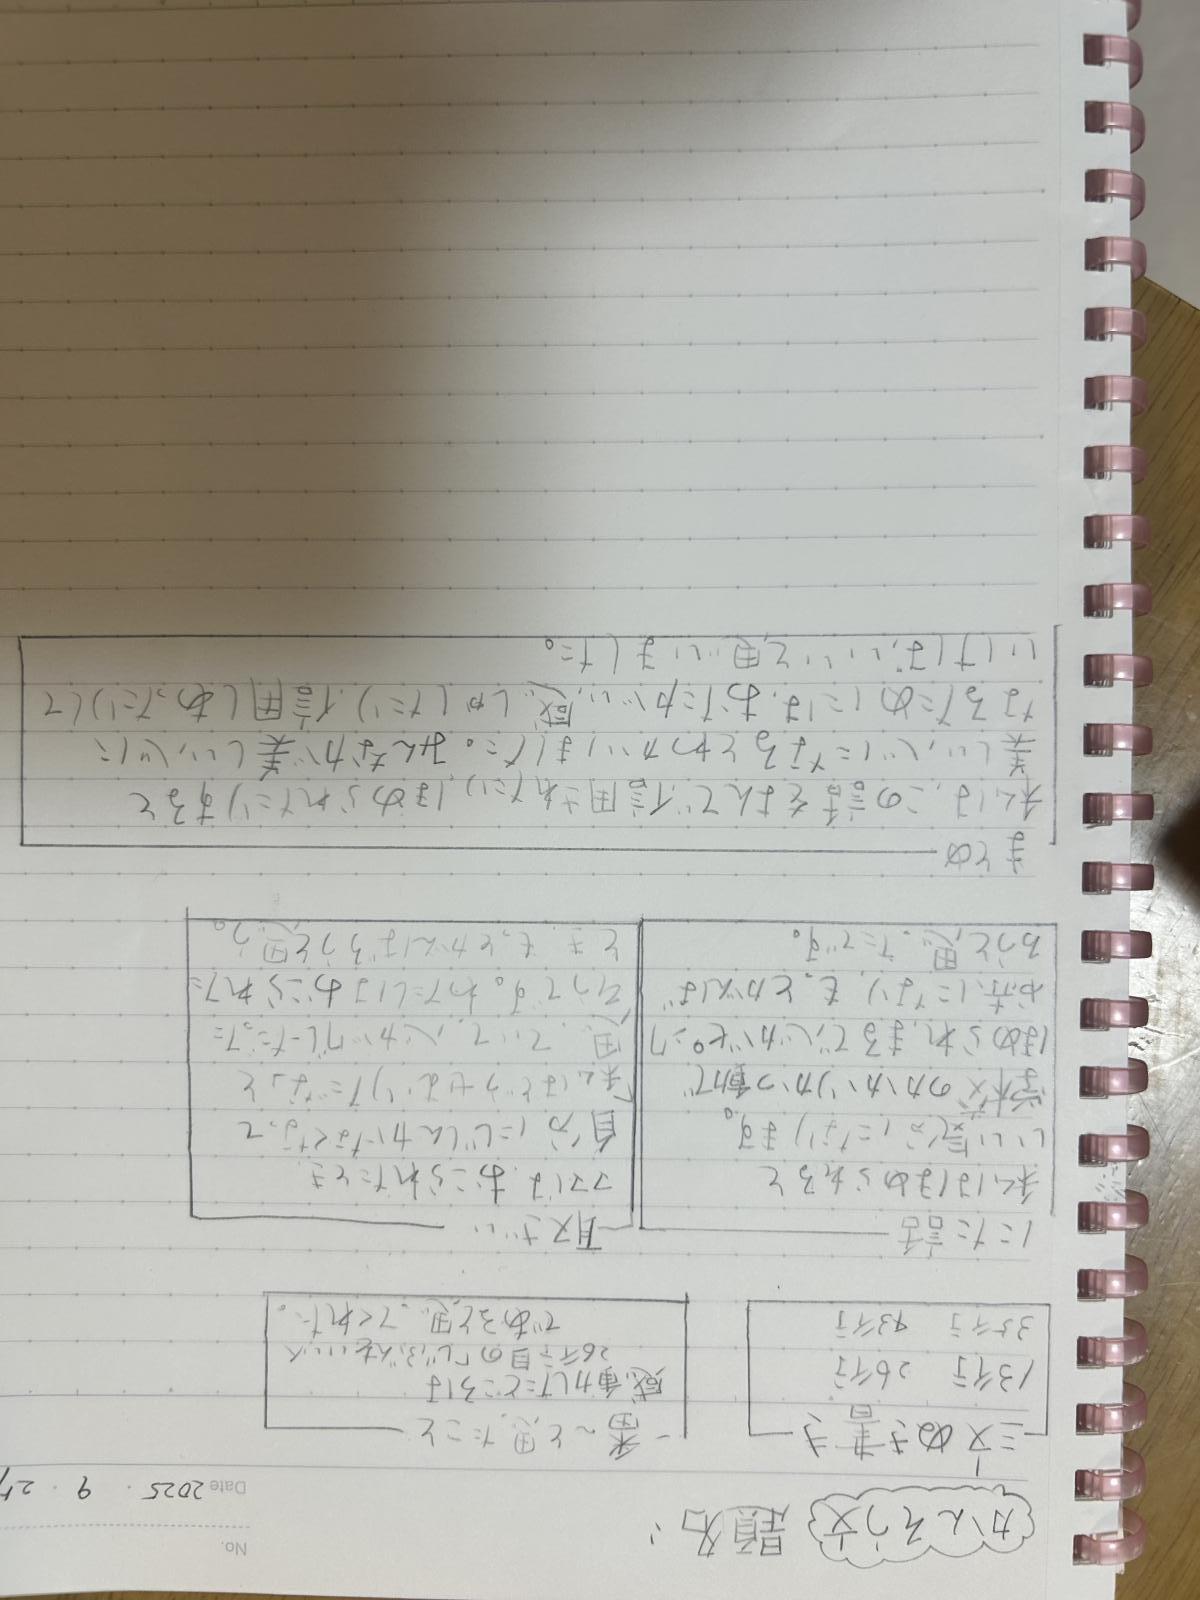 No.
Date 2025 ・ 9 ・ 27
かんそう文 題名
三文ぬき書き
13行 26行
35行 43行
一番～と思ったこと
感動したところは
26行目の「じぶんをいい人
であると思ってくれた。
にた話
私はほめられると
いい気分になります。
学校のかかりかつ動で
ほめられ、まるで心がピンク
お赤になり、もっとがんば
ろうと思ったです。
取ざい
ママは、おこられたとき
自分にじしんがなくなって
「私はどうせむりだなっと
思っていて、心がブルーだった
そうです。わたしはおこられた
とき、もっとがんばろうと思う。
まとめ
私は、この話をよんで、信用されたり、ほめられたりすると
美しい心になるとわかりました。みんなが美しい心に
なるためには、おたがい、感しゃしたり、信用しあったりして
いけば、いいと思いました。